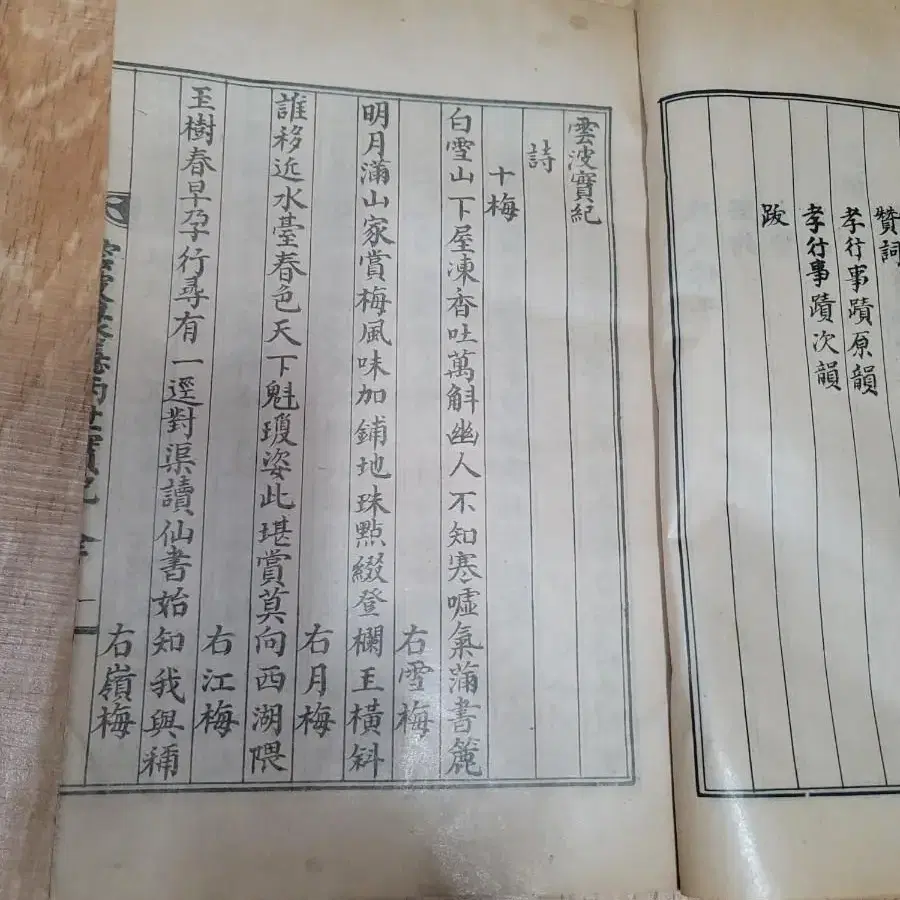 贊詞
孝行事蹟原韻
孝行事蹟次韻
跋
雲波實紀
詩
十梅
白雪山下屋凍香吐萬斛幽人不知寒噓氣滿書簏
右雪梅
明月滿山家賞梅風味加鋪地珠點綴登欄玉橫斜
右月梅
誰移近水臺春色天下魁瓊姿此堪賞莫向西湖隈
右江梅
玉樹春早孕行尋有一逕對渠讀仙書始知我與稱
右嶺梅